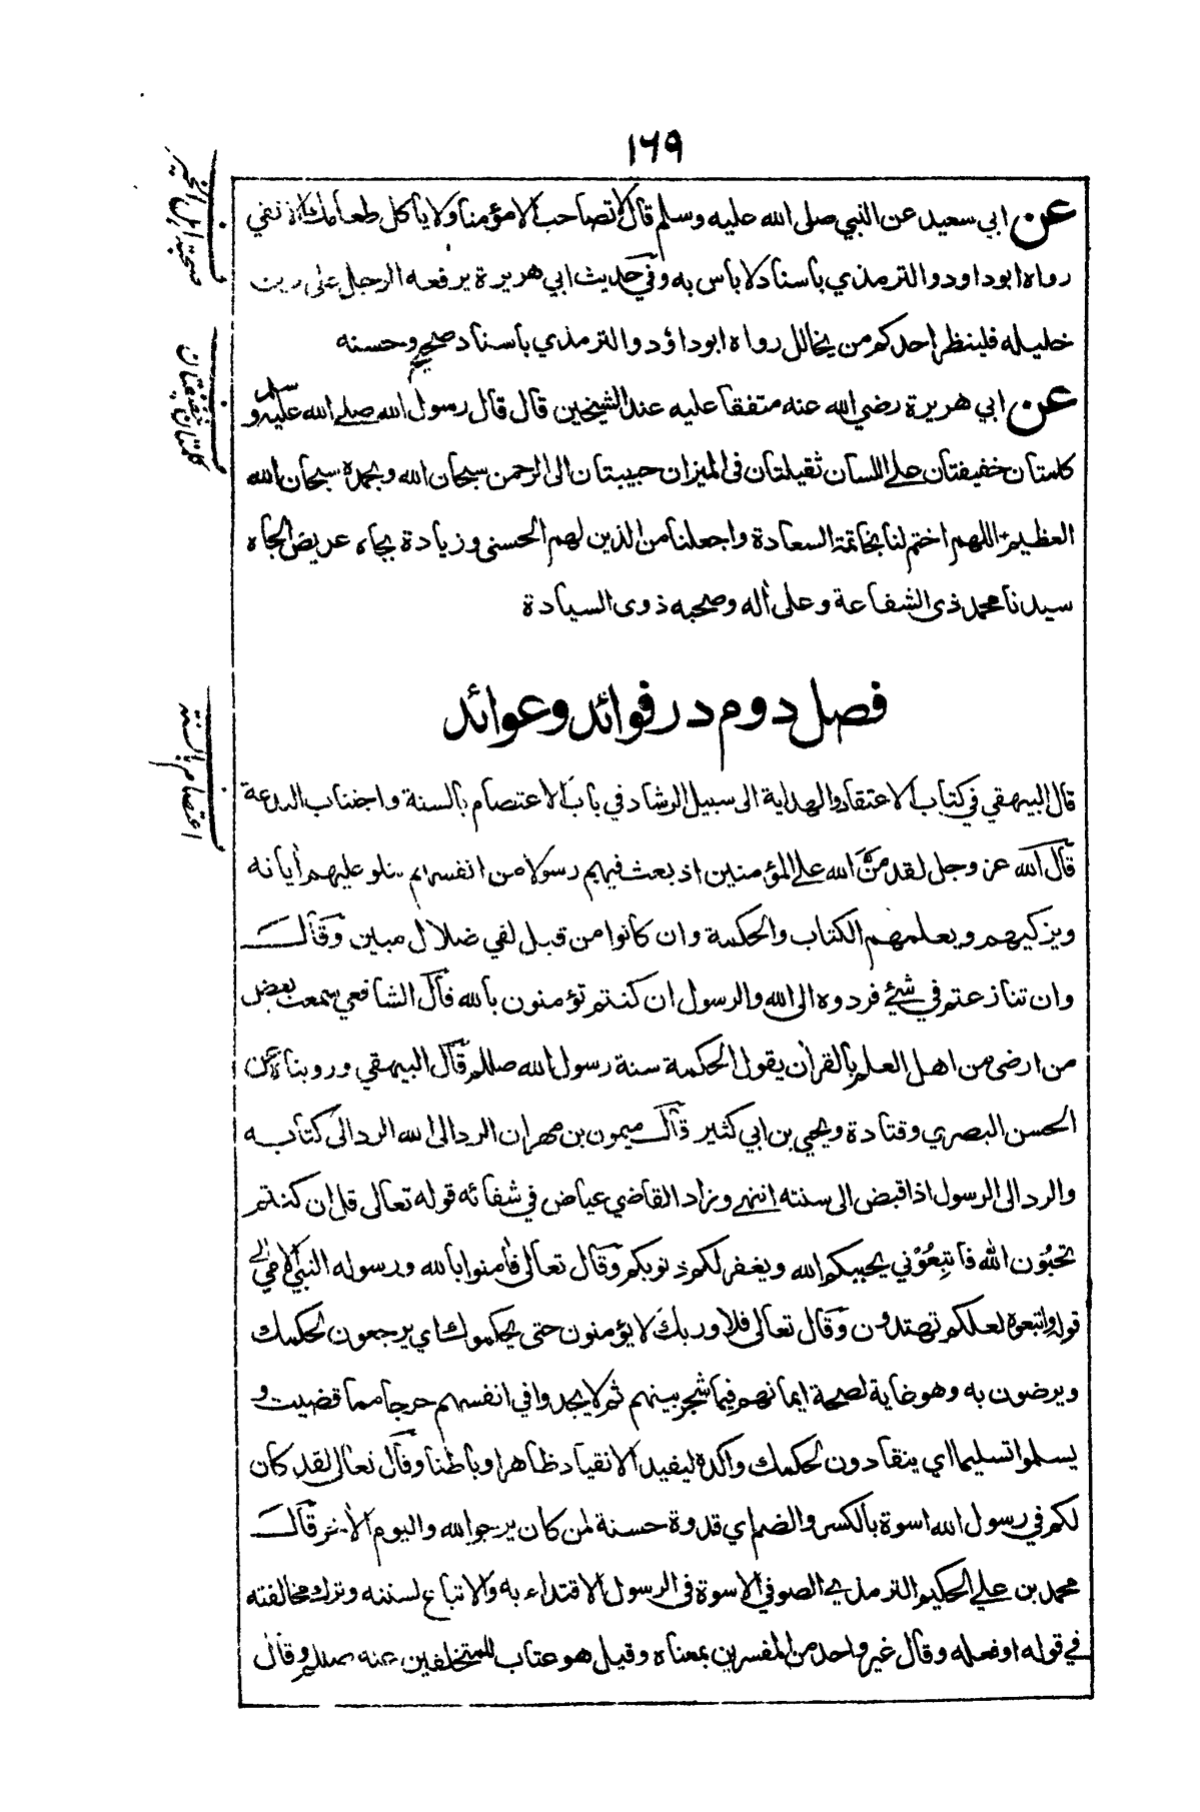 ١٦٩
صحبة اہل الخير
عن ابي سعيد عن النبي صلى الله عليه وسلم قال لا تصاحب الا مؤمنا ولا ياكل طعامك الا تقي
رواه ابو داود والترمذي باسناد لا باس به وفي حديث ابي هريرة يرفعه الرجل على دين
خليله فلينظر احدكم من يخالل رواه ابو داؤد والترمذي باسناد صحيح وحسنه
كلمتان خفيفتان
عن ابي هريرة رضي الله عنه متفقا عليه عند الشيخين قال قال رسول الله صلے الله عليه و سلم
كلمتان خفيفتان علے اللسان ثقيلتان فى الميزان حبيبتان الى الرحمن سبحان الله وبحمده سبحان الله
العظيم اللهم اختم لنا بخاتمة السعادة واجعلنا من الذين لهم الحسنى وزيادة بجاه عريض الجاه
سيدنا محمد ذى الشفاعة وعلى أله وصحبه ذوى السيادة
فصل دوم در فوائد وعوائد
اعتصام بالسنة
قال البيهقي في كتاب الاعتقاد والهداية الى سبيل الرشاد في باب الاعتصام بالسنة واجتناب البدعة
قال الله عز وجل لقد منّ الله علے المؤمنين اذ بعث فيهم رسولا من انفسهم يتلو عليهم أياته
ويزكيهم ويعلمهم الكتاب والحكمة وان كانوا من قبل لفي ضلال مبين وقال
وان تنازعتم في شيئ فردوه الى الله والرسول ان كنتم تؤمنون بالله قال الشافعي سمعت بعض
من ارضى من اهل العلم بالقرأن يقول الحكمة سنة رسول الله صللم قال البيهقي ورويناه عن
الحسن البصري وقتادة ويحيي بن ابي كثير قال ميمون بن مهران الرد الى الله الرد الى كتابه
والرد الى الرسول اذا قبض الى سنته انتهے وزاد القاضي عياض في شفائه قوله تعالى قل ان كنتم
تحبون الله فاتبعوني يحببكم الله ويغفر لكم ذنوبكم وقال تعالى فأمنوا بالله ورسوله النبي الامي الى
قوله واتبعوه لعلكم تهتدون وقال تعالى فلا وربك لا يؤمنون حتى يحكموك اي يرجعون لحكمك
ويرضون به وهو غاية لصحة ايمانهم فيما شجر بينهم ثم لا يجدوا في انفسهم حرجا مما قضيت و
يسلموا تسليما اي ينقادون لحكمك واكده ليفيد الانقياد ظاهرا وباطنا وقال تعالى لقد كان
لكم في رسول الله اسوة بالكسر والضم اي قدوة حسنة لمن كان يرجو الله واليوم الأخر قال
محمد بن علي الحكيم الترمذي الصوفي الاسوة فى الرسول الاقتداء به والاتباع لسنته وترك مخالفته
في قوله او فعله وقال غير واحد من المفسرين بمعناه وقيل هو عتاب للمتخلفين عنه صللم وقال